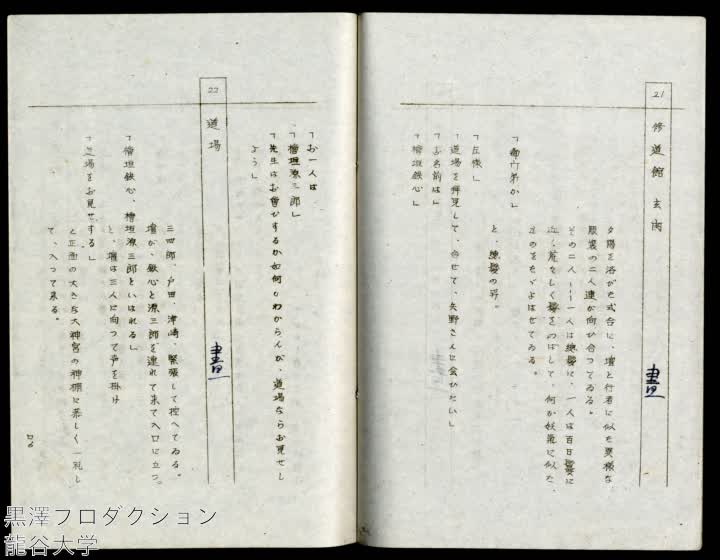 21
修道館 玄関
夕陽を浴びた式台に、壇と行者に似た異様な
服装の二人連が向ひ合つてゐる。
その二人――一人は総髪に、一人は百日鬘に
近く、髪をのばして、何か妖気に似た
ものをたゞよはせてゐる。
と、総髪の男。
「御門弟か」
「左様」
「道場を拝見して、合せて、矢野さんに会ひたい」
「お名前は」
「檜垣鉄心」
「お一人は
「檜垣源三郎」
「先生はお会ひするか如何かわからんが、道場ならお見せし
よう」
22
道場
三四郎、戸田、津崎、緊張して控へてゐる。
壇が、鉄心と源三郎を連れて来て入口に立つ。
「檜垣鉄心、檜垣源三郎といはれる」
と、壇は三人に向つて声を掛け
「道場をお見せする」
と正面の大きな大神宮の神棚に恭しく一礼し
て、入つて来る。
書
書
黒澤プロダクション
龍谷大学